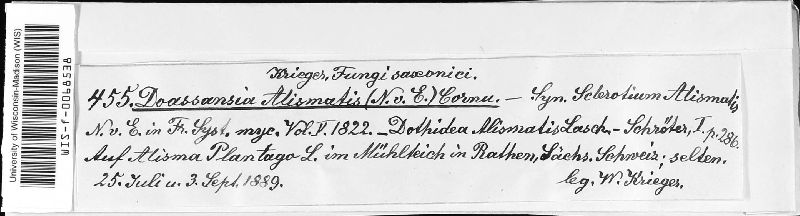 University of Wisconsin-Madison (WIS)
WIS-F-0079858
Krieger, Fungi saxonici.
455. Doassansia Alismatis (N. v. E.) Cornu. — Syn. Sclerotium Alismatis
N. v. E. in Fr. Syst. myc. Vol. II. 1822. — Dothidea Alismatis Lasch. — Schröter, I. p. 286.
Auf Alisma Plantago L. im Mühlteich in Rathen, Sächs. Schweiz; selten.
25. Juli u. 3. Sept. 1889. leg. W. Krieger.